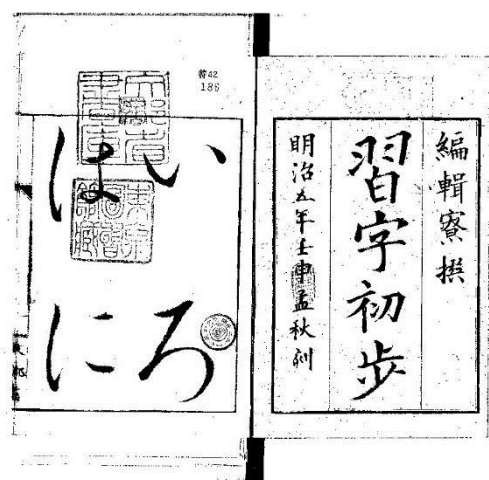 編輯寮撰
習字初歩
明治五年壬申孟秋刻
特42
186
いろ
はに